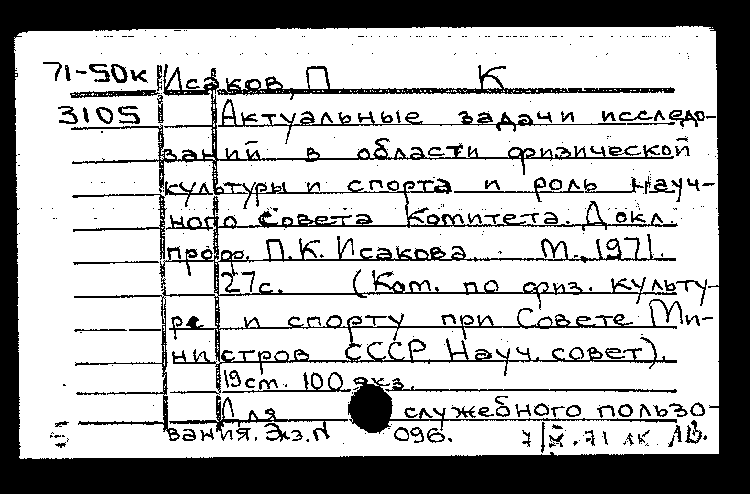 71-50к Исаков, П К
3105 Актуальные задачи исследо-
ваний в области физической
культуры и спорта и роль науч-
ного Совета Комитета. Докл.
проф. П.К. Исакова. М., 1971.
27с. (Ком. по физ. культу-
ре и спорту при Совете Ми-
нистров СССР. Науч. совет).
19см. 100 экз.
Для служебного пользо-
вания. Экз. N 096. 71 ЛК